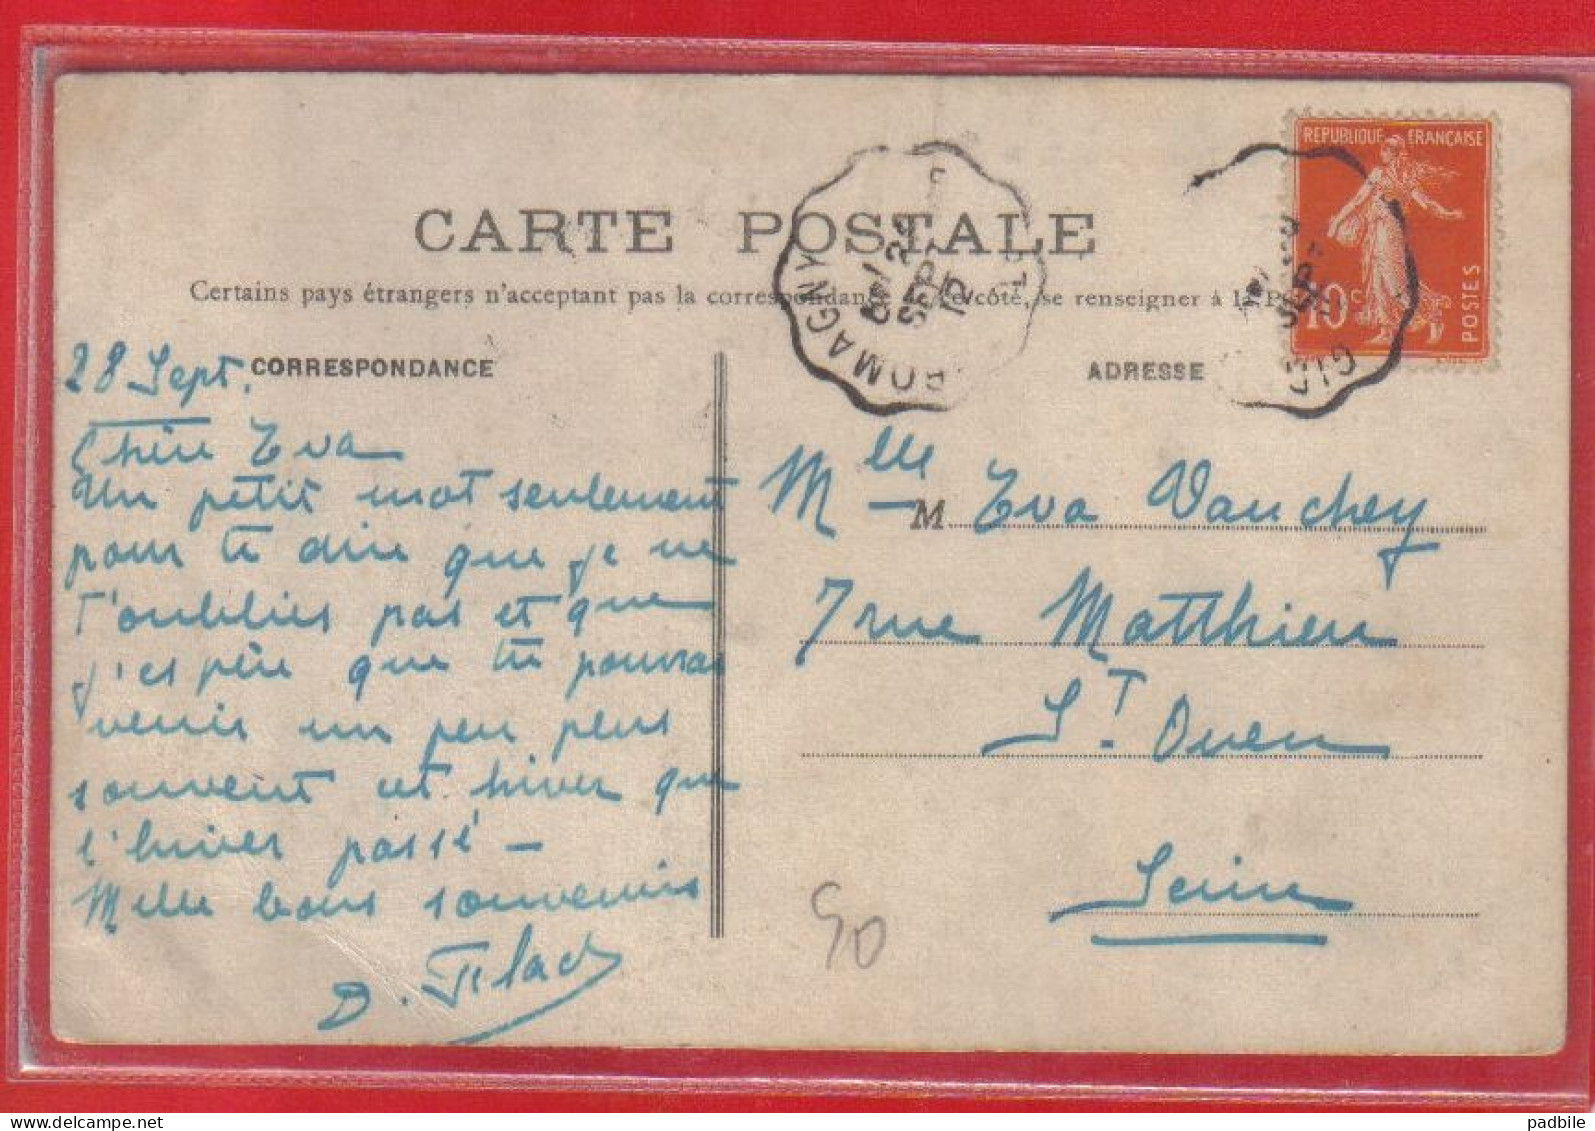 CARTE POSTALE
Certains pays étrangers n'acceptant pas la correspondance de ce côté, se renseigner à la P
CORRESPONDANCE
ADRESSE
REPUBLIQUE FRANÇAISE
10c
POSTES
ROMAGNY
28
SEPT
12
28 Sept.
Chère Eva
Un petit mot seulement
pour te dire que je ne
t'oublies pas et que
j'espère que tu pourras
venir un peu plus
souvent cet hiver que
l'hiver passé –
Mille bons souvenirs
D. Filad
Mlle M Eva Vauchey
7 rue Matthieu
St. Ouen
Seine
50
padbile